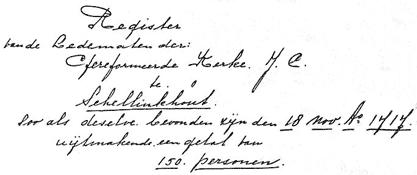 Register
van de Ledematen der:
Gereformeerde Kerke. J. C.
te.
Schellinkhout.
Soo als deselve bevonden zijn den 18 nov. Ao 1717.
uijtmakende een getal van
150. personen.